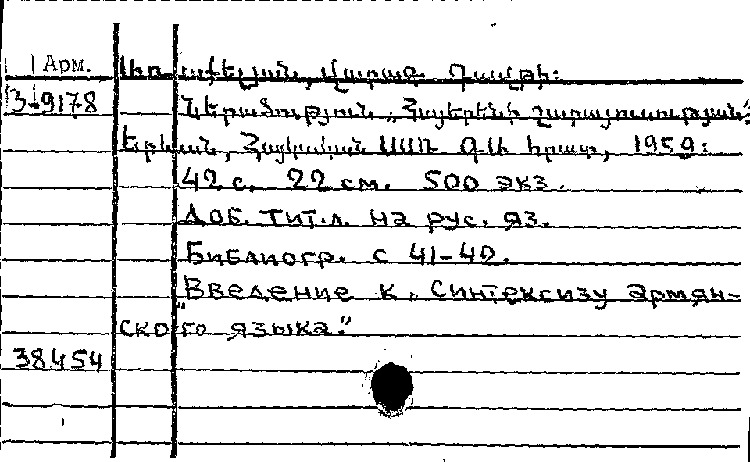 Арм.
3-9178
Առաքելյան, Վարագ Դավթի:
Ներածություն „Հայերենի շարահյուսության":
Երևան, Հայկական ՍՍՌ ԳԱ հրատ, 1959:
42 с. 22 см. 500 экз.
Доб. тит.л. на рус. яз.
Библиогр. с 41-40.
"Введение к „ синтексизу армян-
ского языка."
38454